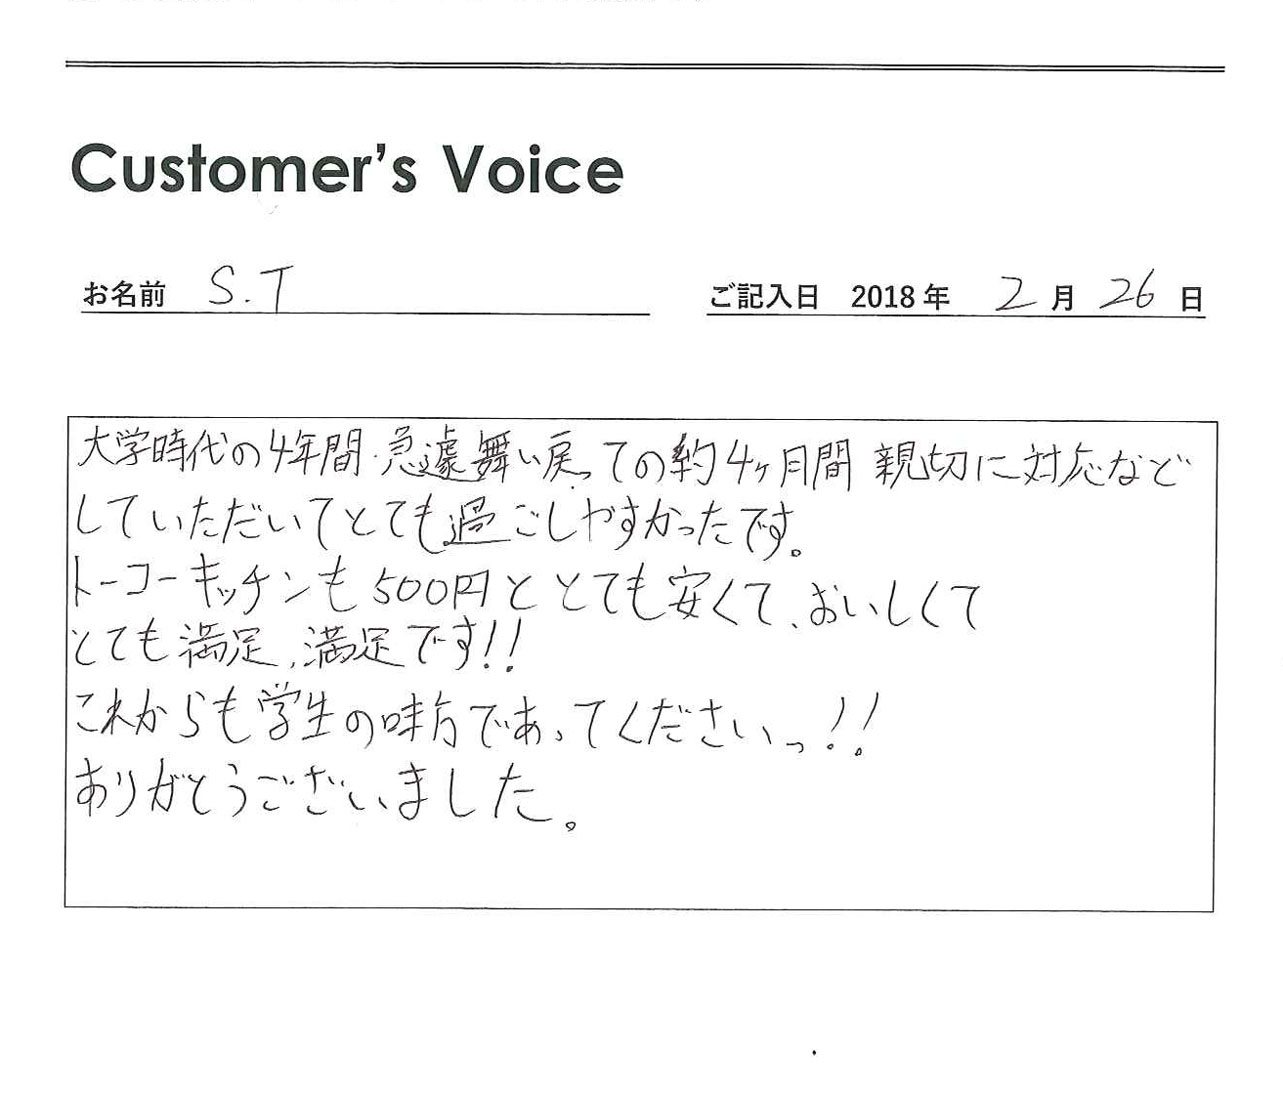 Customer's Voice
お名前 S.T
ご記入日 2018年 2月26日
大学時代の4年間・急遽舞い戻っての約4ヶ月間 親切に対応など
していただいてとても過ごしやすかったです。
トーコーキッチンも500円ととても安くて、おいしくて
とても満足、満足です!!
これからも学生の味方であってくださいっ!!
ありがとうございました。